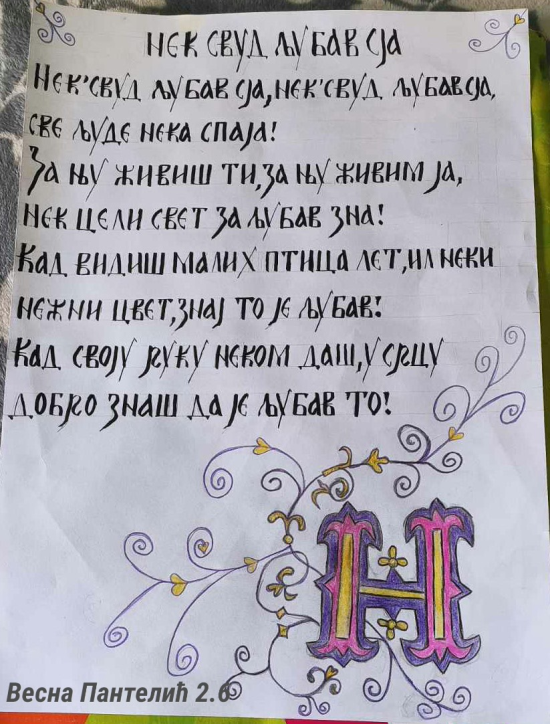 НЕК СВУД ЉУБАВ СЈА
НЕК'СВУД ЉУБАВ СЈА, НЕК'СВУД ЉУБАВ СЈА,
СВЕ ЉУДЕ НЕКА СПАЈА!
ЗА ЊУ ЖИВИШ ТИ, ЗА ЊУ ЖИВИМ ЈА,
НЕК ЦЕЛИ СВЕТ ЗА ЉУБАВ ЗНА!
КАД ВИДИШ МАЛИХ ПТИЦА ЛЕТ, ИЛ НЕКИ
НЕЖНИ ЦВЕТ, ЗНАЈ ТО ЈЕ ЉУБАВ!
КАД СВОЈУ РУКУ НЕКОМ ДАШ, У СРЦУ
ДОБРО ЗНАШ ДА ЈЕ ЉУБАВ ТО!
Н
Весна Пантелић 2.6